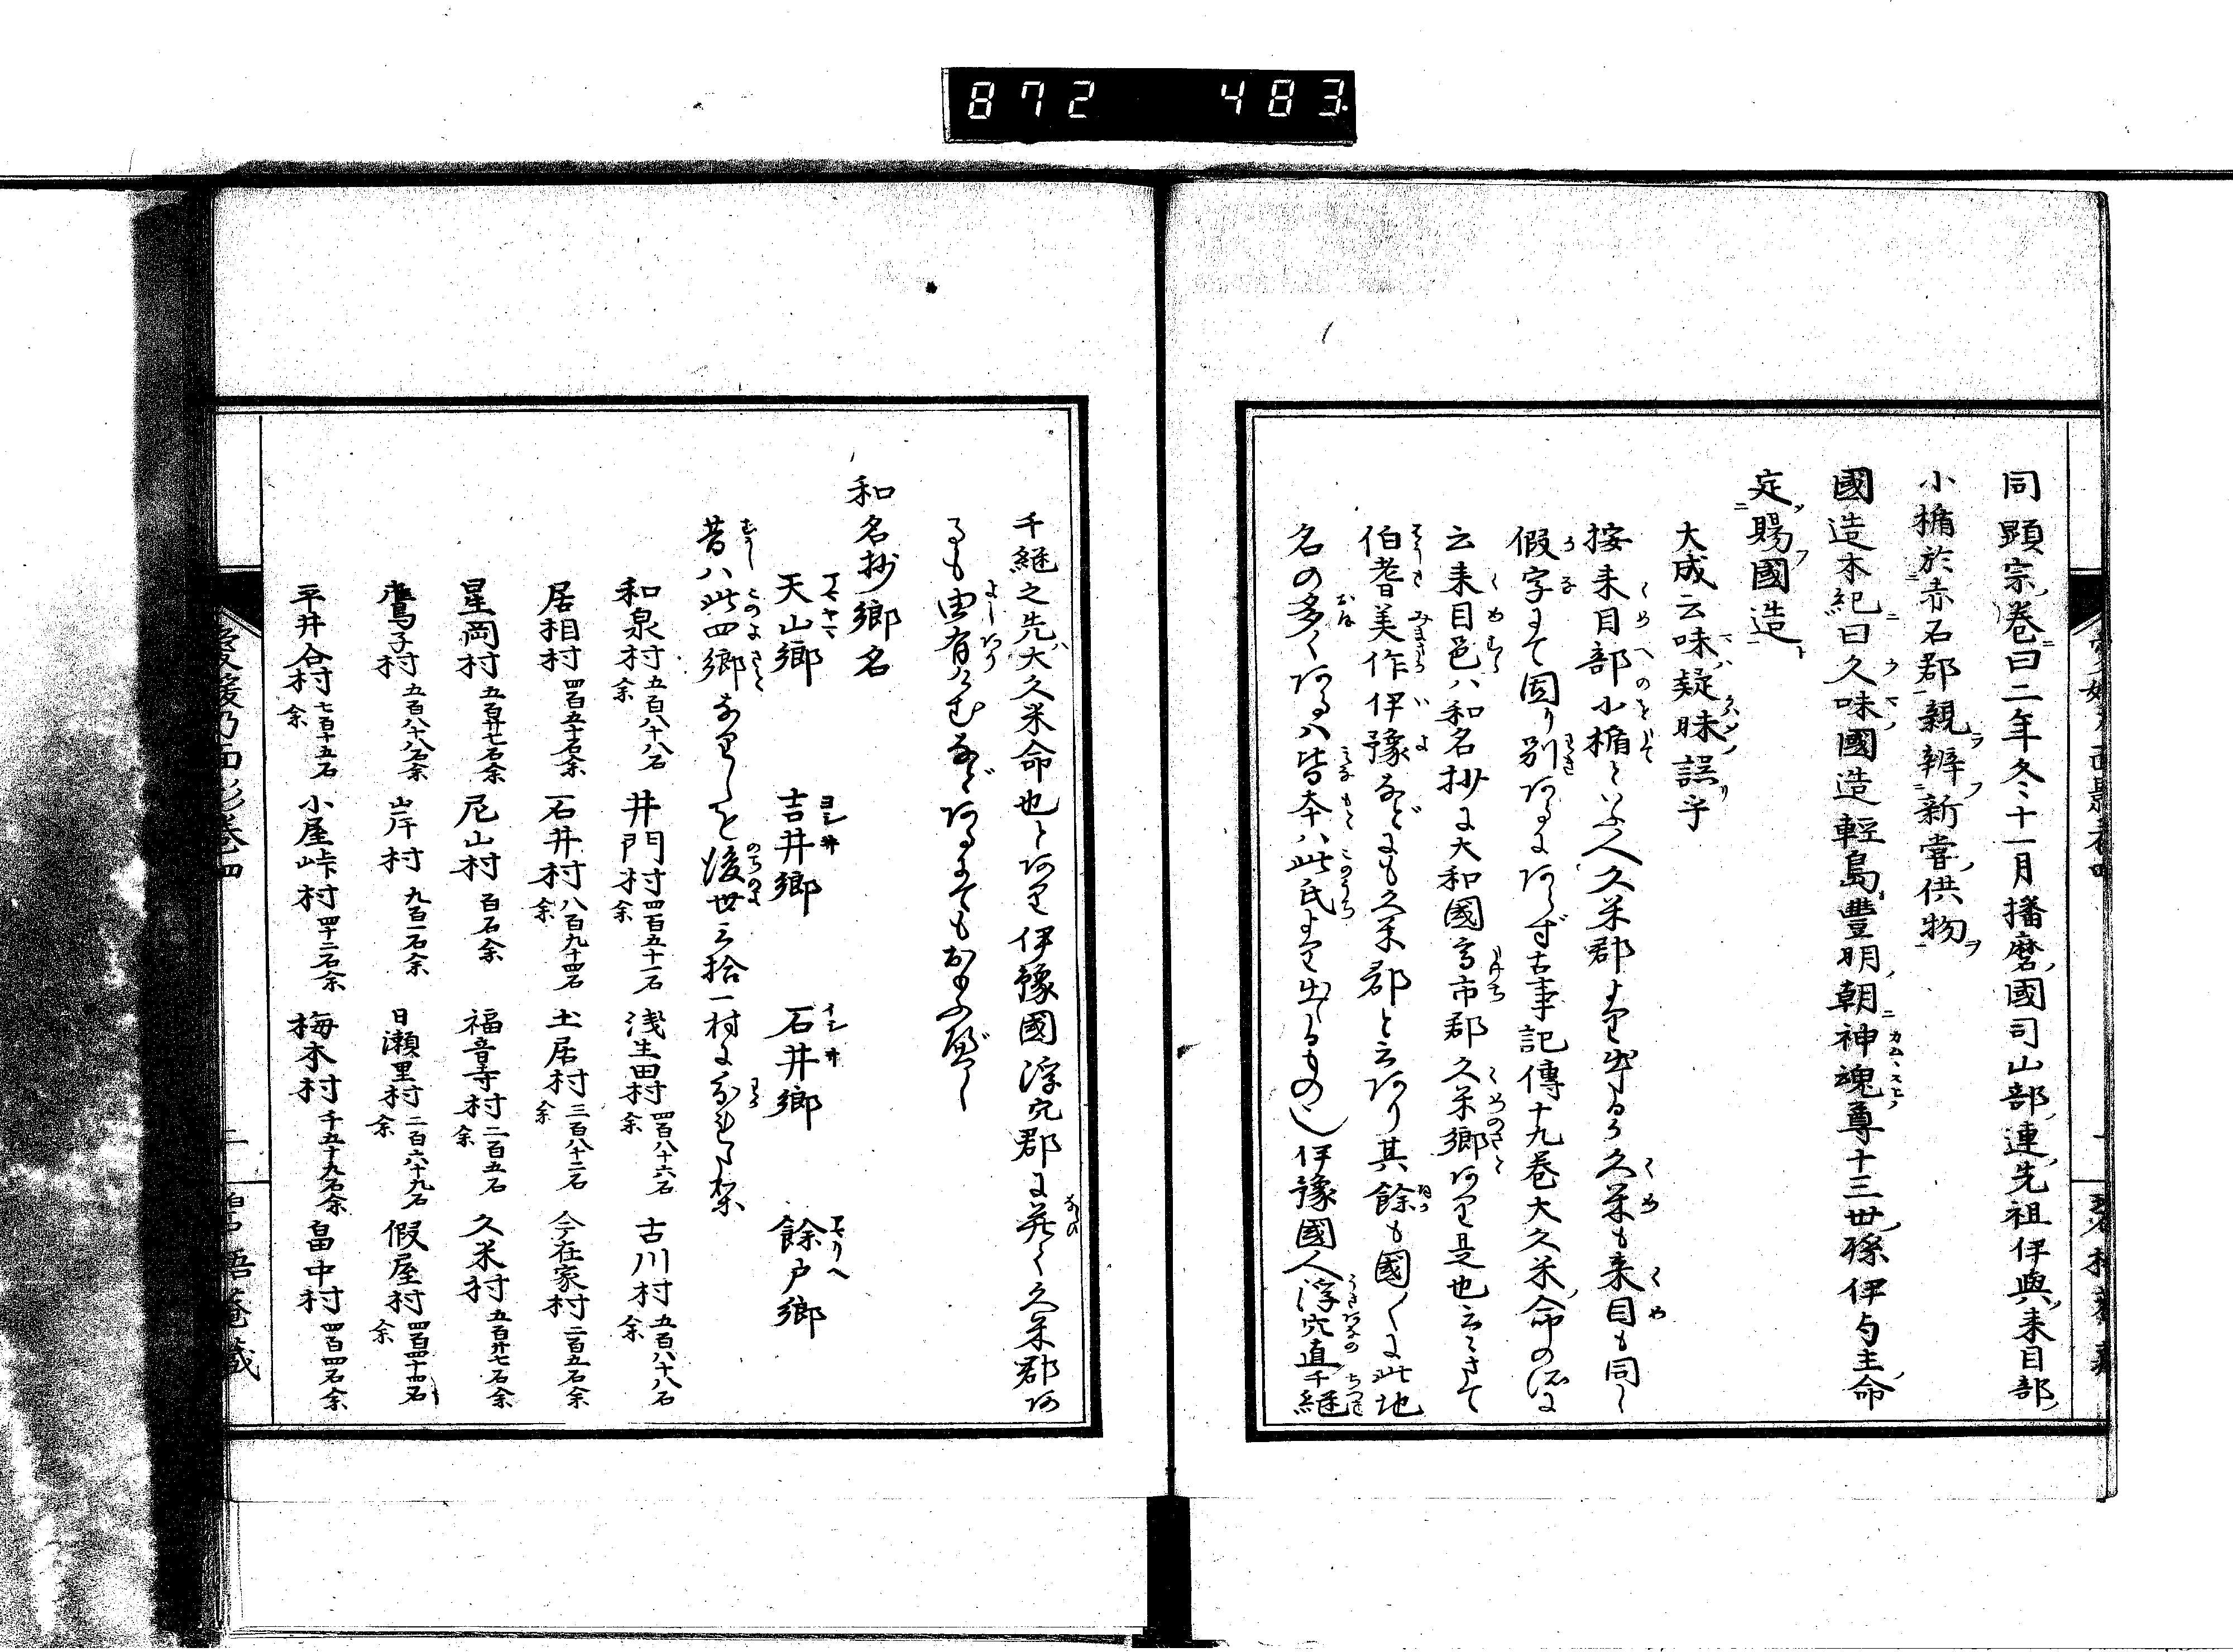 872 483
同顕宗巻曰二年冬十一月播磨國司山部連先祖伊與来目部
小楯於赤石郡親辨新嘗供物
國造本紀曰久味國造輕島豐明朝神魂尊十三世孫伊与主命
定賜國造
大成云味疑昧誤乎
按来目部小楯といふ人久米郡より出るか久米も来目も同し
假字にて固り別あるにあらず古事記傳十九巻大久米命の所に
云来目邑ハ和名抄に大和國高市郡久米郷あり是也云々さて
伯耆美作伊豫などにも久米郡と云あり其餘も國〱に此地
名の多くあるハ皆本ハ此氏より出てるもの也伊豫國人浮穴直千継
千継之先大久米命也とあり伊豫國浮穴郡に並く久米郡あ
るも由有けむなどあるにてもおもふべし
和名抄郷名
天山郷 吉井郷 石井郷 餘戸郷
昔ハ此四郷なりしを後世三拾一村に
和泉村五百八十八石余 井門村四百五十一石余 浅生田村四百八十六石余 古川村五百八十八石余
居相村四百五十石余 石井村八百九十四石余 土居村三百八十二石余 今在家村二百五石余
星岡村五百廿七石余 尼山村百石余 福音寺村二百五石余 久米村五百廿七石余
鷹子村五百八十八石余 岸村九百一石余 日瀬里村二百六十九石余 假屋村四百四十四石余
平井谷村七百十五石余 小屋峠村四十二石余 梅木村千五十九石余 畠中村四百四石余
愛媛乃面影巻四 二